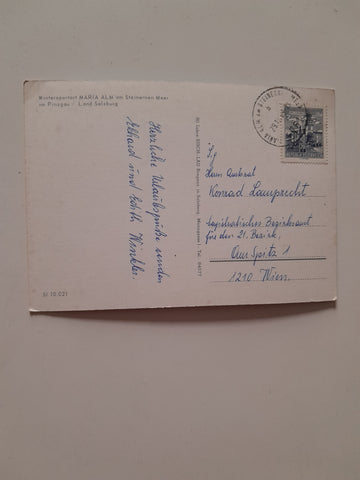 Wintersportort MARIA ALM am Steinernen Meer
im Pinzgau · Land Salzburg
Herzliche Urlaubsgrüße senden
Erhard und Edith Winkler.
Herrn Amtsrat
Konrad Lamprecht
Magistratisches Bezirksamt
für den 21. Bezirk.
Am Spitz 1
1210 Wien.
SI 10.021